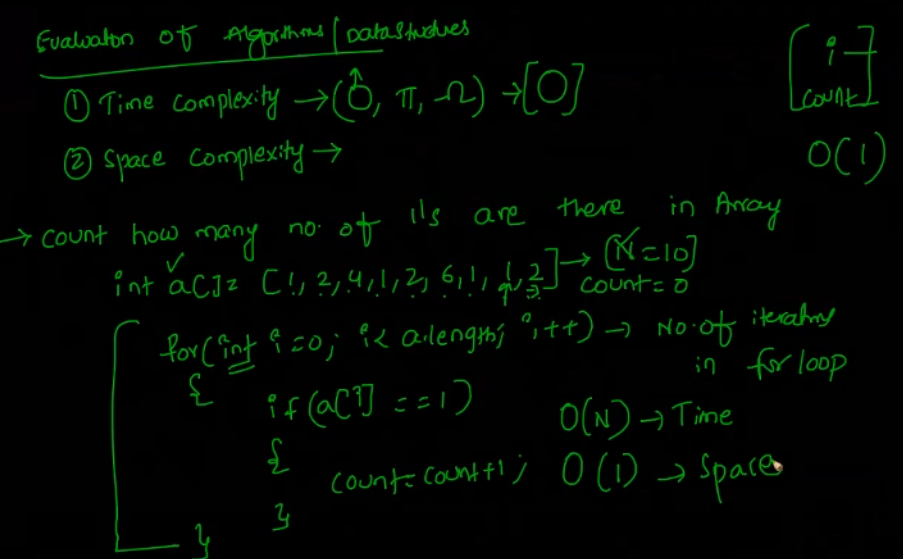 Evaluation of Algorithms/Datastructures
① Time complexity → (O, π, Ω) → [O]
② Space complexity →
[i
count]
O(1)
→ count how many no. of 1's are there in Array
int a[] = [1, 2, 4, 1, 2, 6, 1, 1, 2] → [N=10]
count = 0
for(int i=0; i< a.length; i++) → No. of iterations
in for loop
{
if(a[i] == 1)
O(N) → Time
{
count = count+1;
O(1) → Space
}
}